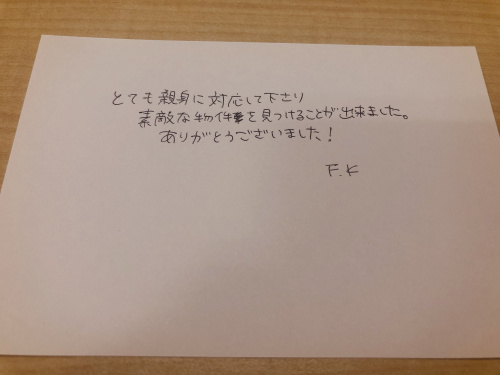 とても親身に対応して下さり
素敵な物件を見つけることが出来ました。
ありがとうございました!
F.K